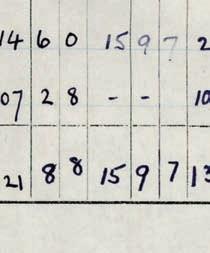 14 6 0 15 9 7 2
07 2 8 - - 10
21 8 8 15 9 7 13